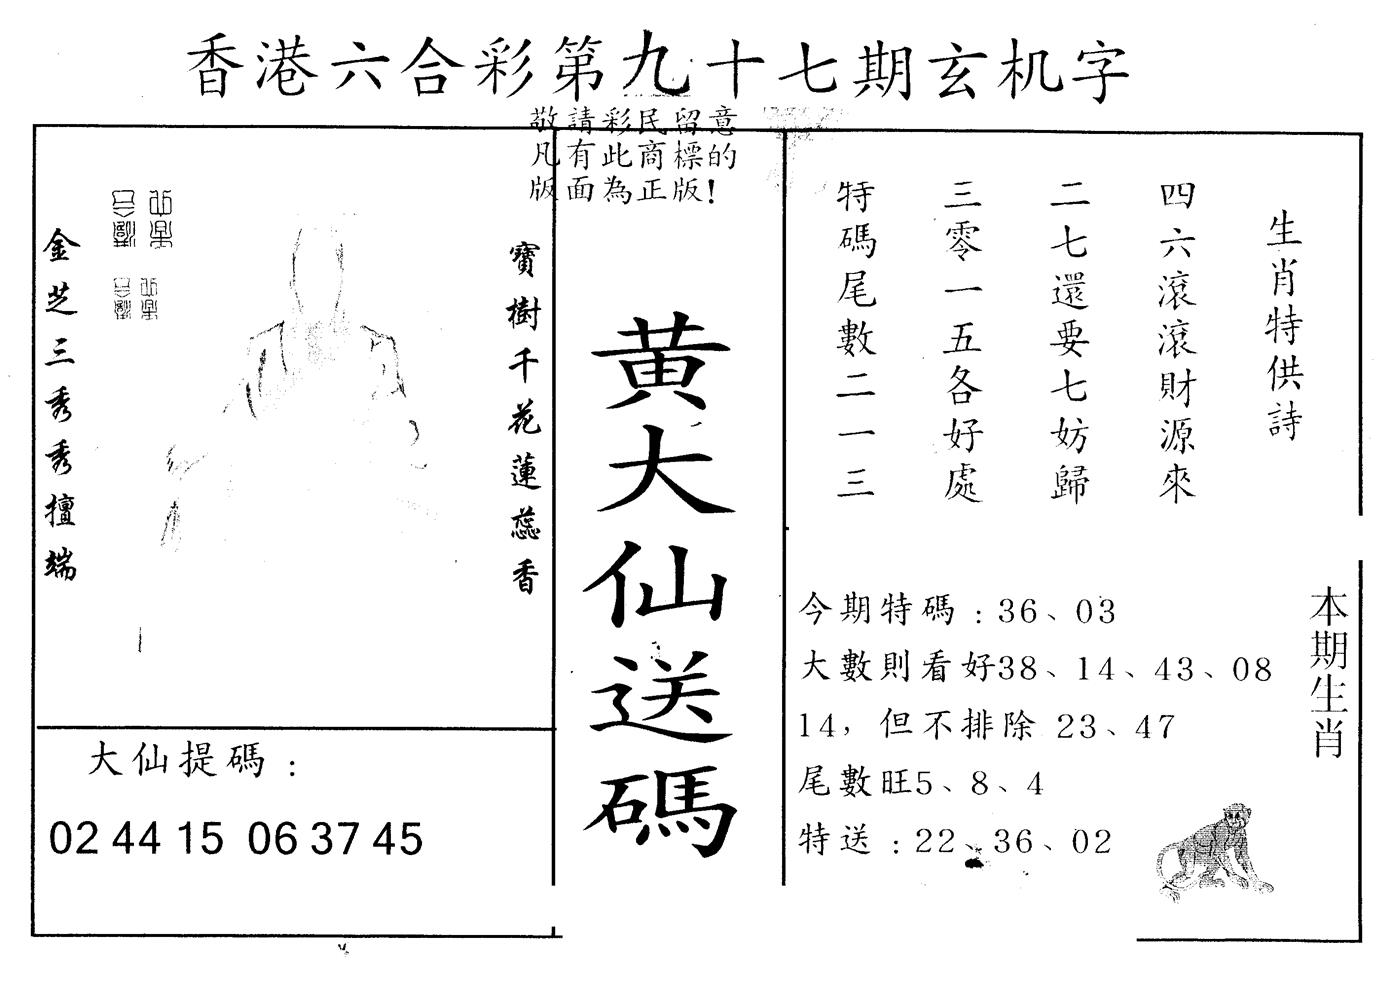 香港六合彩第九十七期玄机字
敬請彩民留意
凡有此商標的
版面為正版!
生肖特供詩
四六滾滾財源來
二七還要七妨歸
三零一五各好處
特碼尾數二一三
黄大仙送碼
寶樹千花蓮蕊香
金芝三秀秀擅端
大仙提碼:
02 44 15 06 37 45
今期特碼:36、03
大數則看好38、14、43、08
14，但不排除 23、47
尾數旺5、8、4
特送:22、36、02
本期生肖